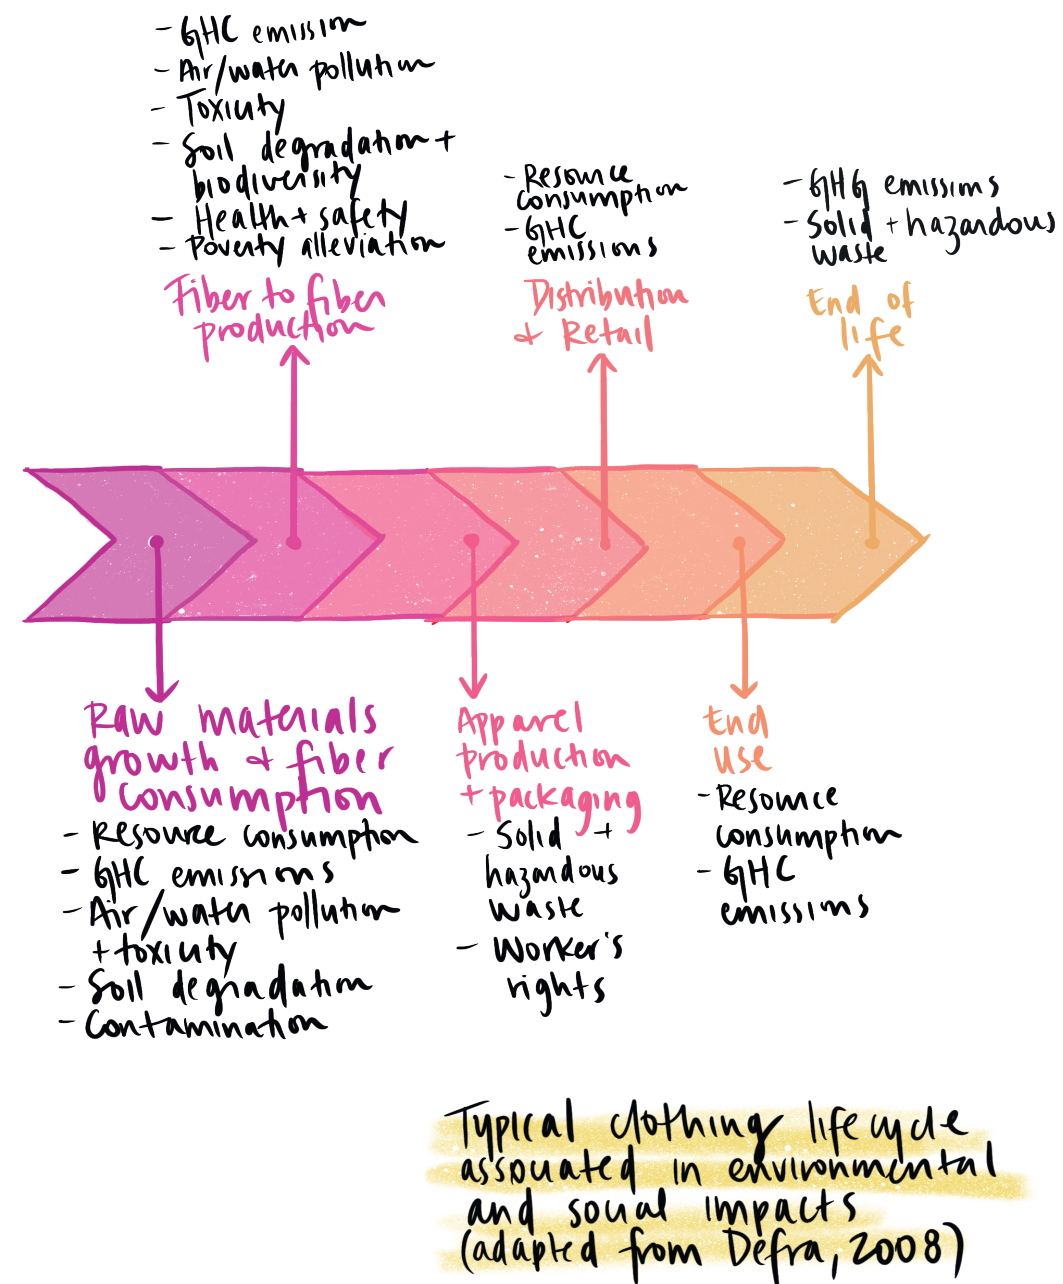 - GHC emission
- Air/water pollution
- Toxicity
- Soil degradation +
biodiversity
- Health + safety
- Poverty alleviation
Fiber to fiber
production
- Resource
consumption
- GHC
emissions
Distribution
& Retail
- GHG emissions
- Solid + hazardous
waste
End of
life
Raw materials
growth & fiber
consumption
- Resource consumption
- GHC emissions
- Air/water pollution
+ toxicity
- Soil degradation
- Contamination
Apparel
production
+ packaging
- Solid +
hazardous
waste
- Worker's
rights
End
use
- Resource
consumption
- GHC
emissions
Typical clothing lifecycle
associated in environmental
and social impacts
(adapted from Defra, 2008)